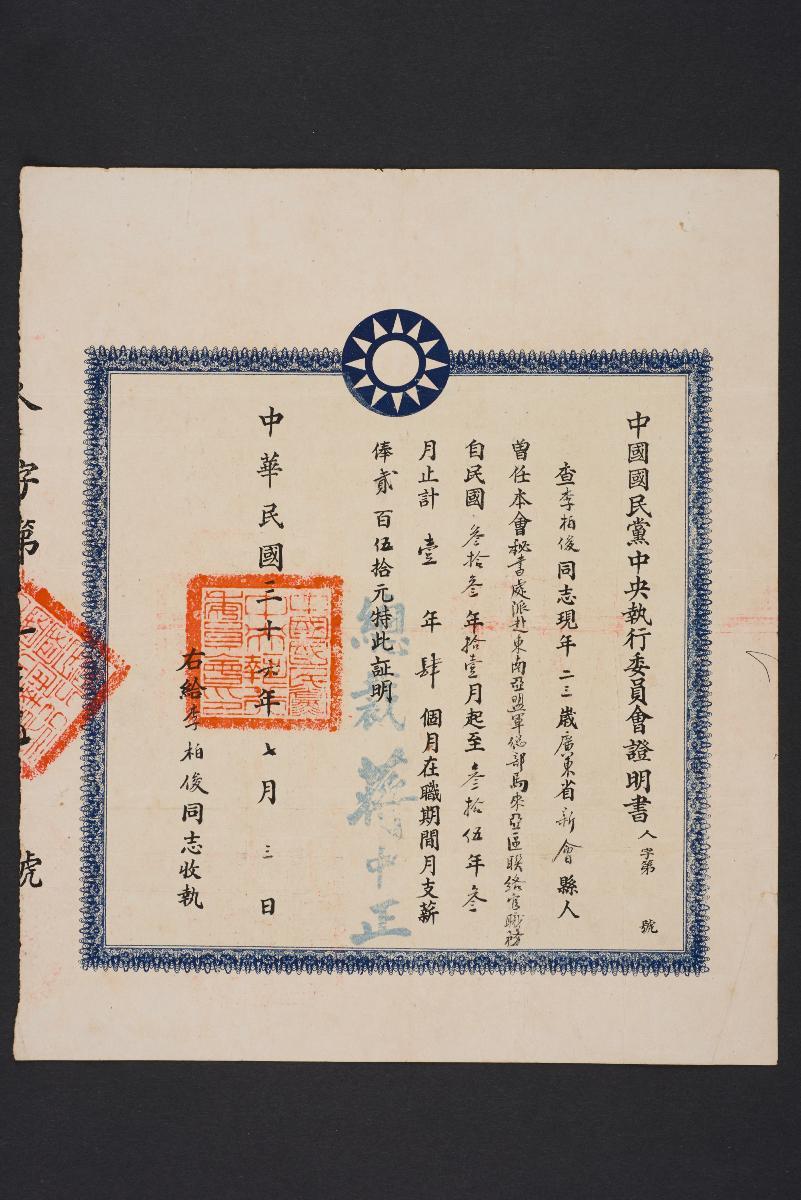 中國國民黨中央執行委員會證明書
人字第 號
查李柏俊同志現年二三歲廣東省新會縣人
曾任本會秘書處派赴東南亞盟軍總部馬來亞區聯絡官職務
自民國叁拾叁年拾壹月起至叁拾伍年叁
月止計壹年肆個月在職期間月支薪
俸貳百伍拾元特此証明
總裁蔣中正
中華民國三十六年七月三日
右給李柏俊同志收執
字第 號